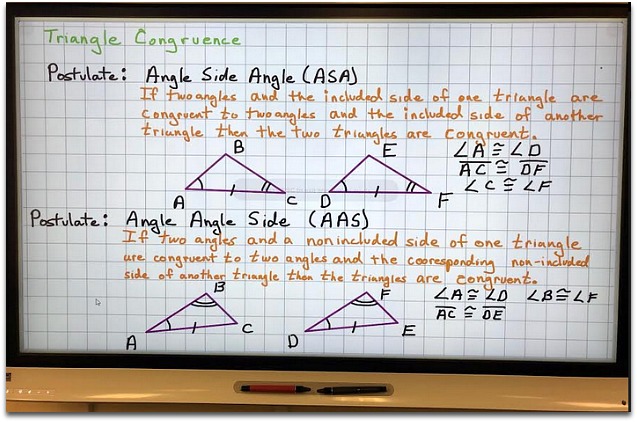 Triangle Congruence
Postulate: Angle Side Angle (ASA)
If two angles and the included side of one triangle are
congruent to two angles and the included side of another
triangle then the two triangles are congruent.
B E ∠A ≅ ∠D
AC ≅ DF
A C D F ∠C ≅ ∠F
Postulate: Angle Angle Side (AAS)
If two angles and a nonincluded side of one triangle
are congruent to two angles and the cooresponding non-included
side of another triangle then the triangles are congruent.
B F ∠A ≅ ∠D ∠B ≅ ∠F
AC ≅ DE
A C D E